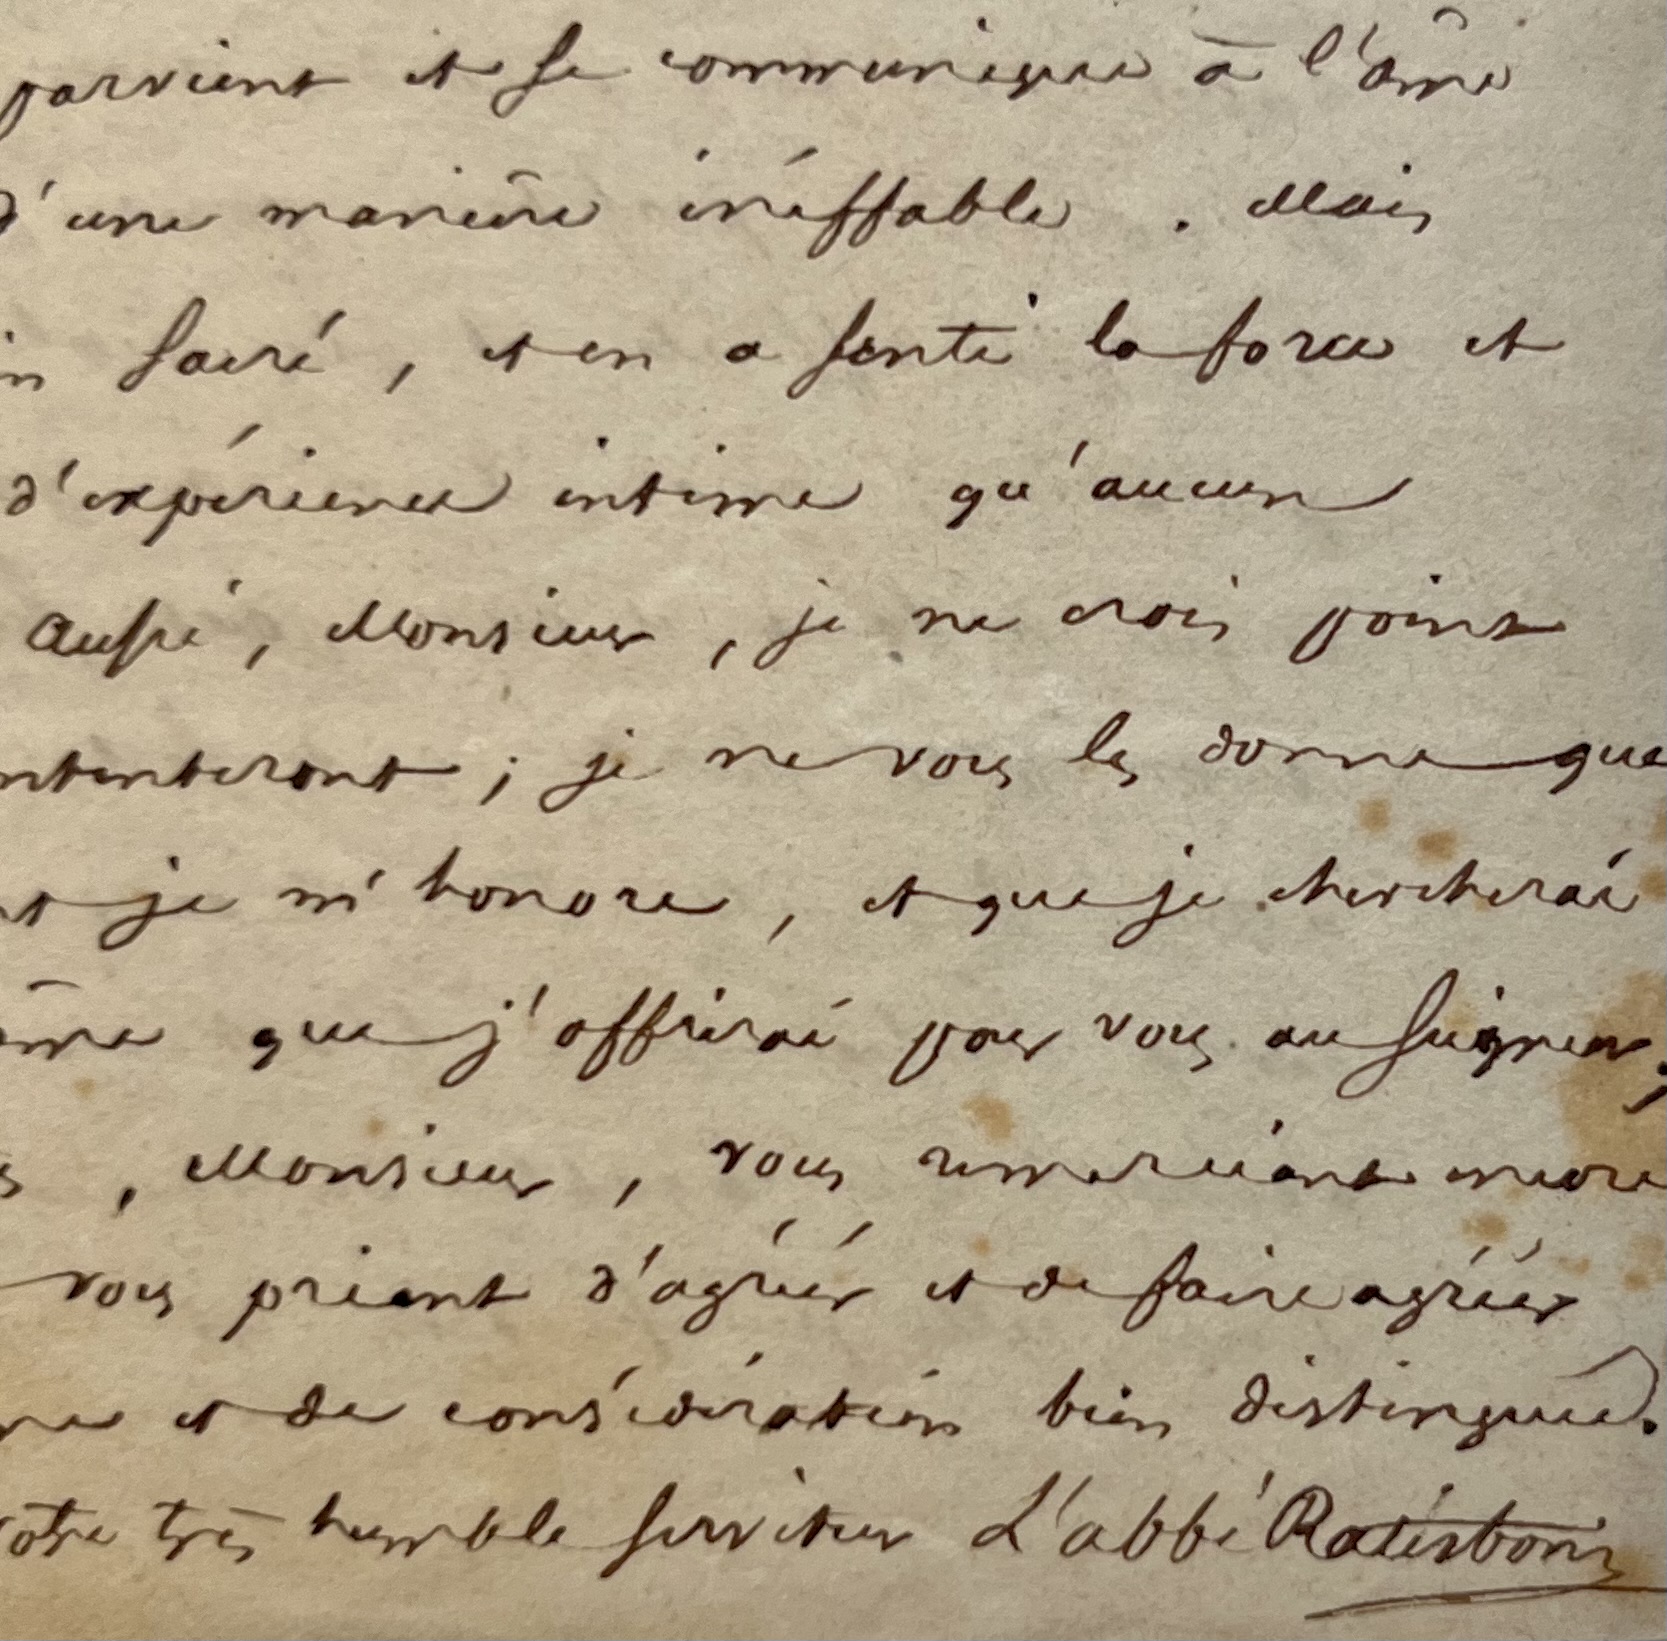 parvient et se communique à l'âme
d'une manière inéffable . Mais
in sacré , et en a senti la force et
d'expérience intime qu'aucun
Aussi , Monsieur , je ne crois point
ntenteront ; je ne vous les donne que
t je m'honore , et que je chercherai
ême que j'offrirai pour vous au Seigneur ;
s , Monsieur , vous remerciant encore
vous priant d'agréér et de faire agréér
me et de considération bien distinguée .
votre très humble serviteur L'abbé Ratisbonne